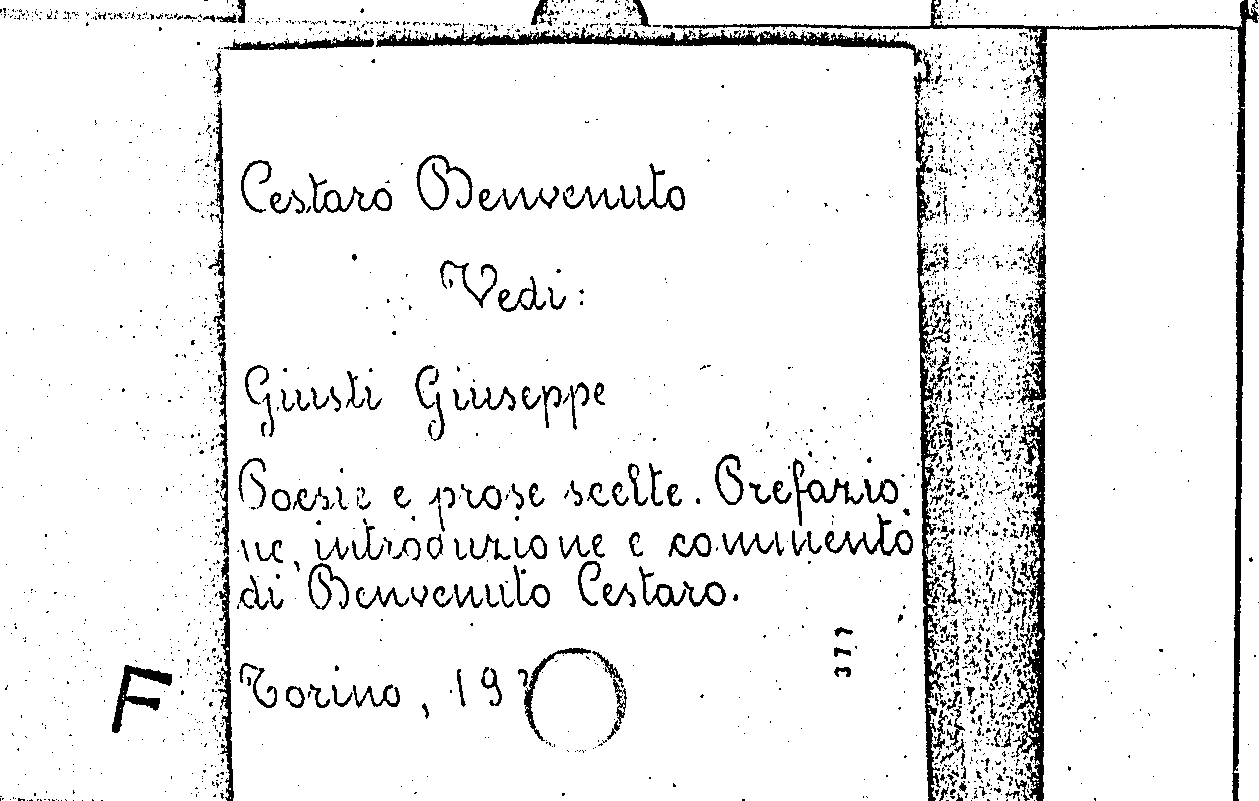 Cestaro Benvenuto
Vedi:
Giusti Giuseppe
Poesie e prose scelte. Prefazio
ne, introduzione e commento
di Benvenuto Cestaro.
377
F
Torino, 19